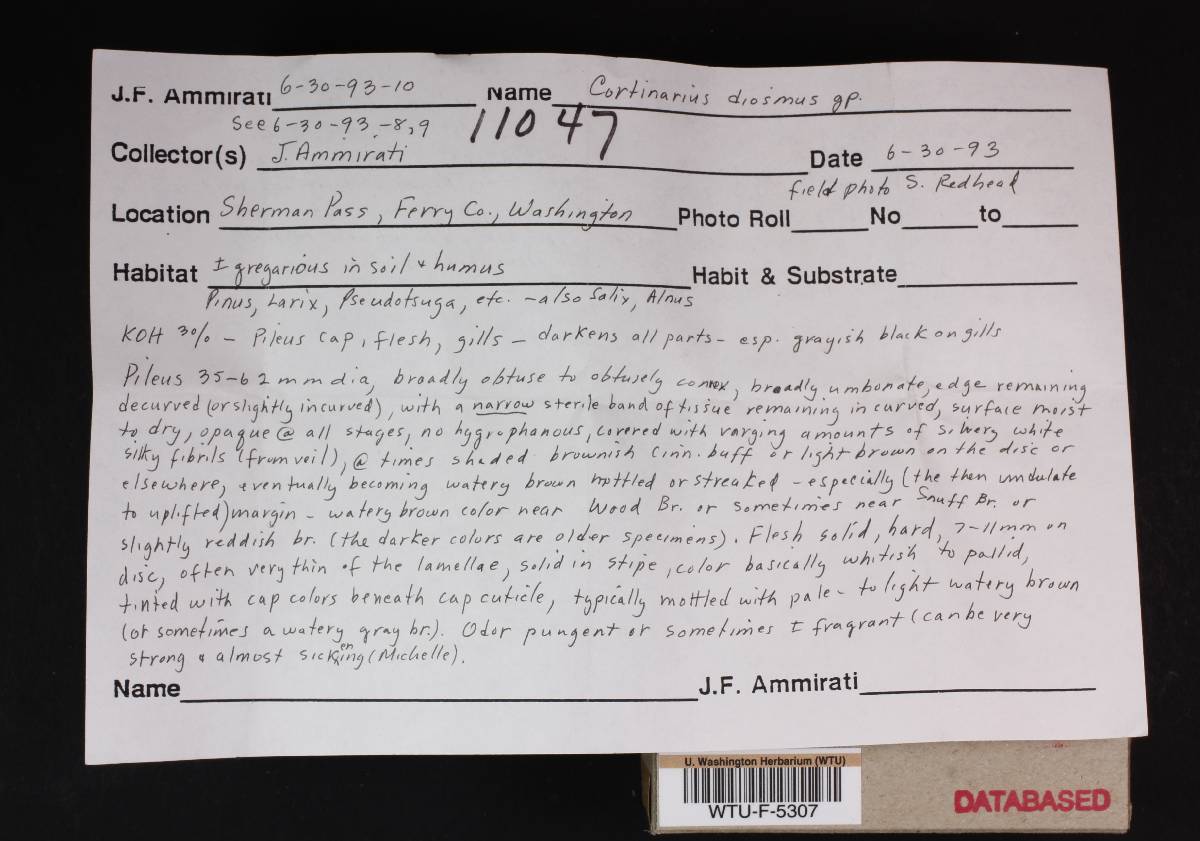 J.F. Ammirati 6-30-93-10 Name Cortinarius diosmus gp.
See 6-30-93-8,9 11047
Collector(s) J. Ammirati Date 6-30-93
field photo S. Redhead
Location Sherman Pass, Ferry Co., Washington Photo Roll No to
Habitat ± gregarious in soil + humus Habit & Substrate
Pinus, Larix, Pseudotsuga, etc. - also Salix, Alnus
KOH 3% - Pileus cap, flesh, gills - darkens all parts - esp. grayish black on gills
Pileus 35-62 mm dia, broadly obtuse to obtusely convex, broadly umbonate, edge remaining
decurved (or slightly incurved), with a narrow sterile band of tissue remaining in curved, surface moist
to dry, opaque @ all stages, no hygrophanous, covered with varging amounts of silvery white
silky fibrils (from veil), @ times shaded brownish cinn. buff or light brown on the disc or
elsewhere, eventually becoming watery brown mottled or streaked - especially (the then undulate
to uplifted) margin - watery brown color near Wood Br. or sometimes near Snuff Br. or
slightly reddish br. (the darker colors are older specimens). Flesh solid, hard, 7-11mm on
disc, often very thin of the lamellae, solid in stipe, color basically whitish to pallid,
tinted with cap colors beneath cap cuticle, typically mottled with pale - to light watery brown
(or sometimes a watery gray br.). Odor pungent or sometimes ± fragrant (can be very
strong & almost sickening (Michelle).
Name J.F. Ammirati
U. Washington Herbarium (WTU)
WTU-F-5307
DATABASED